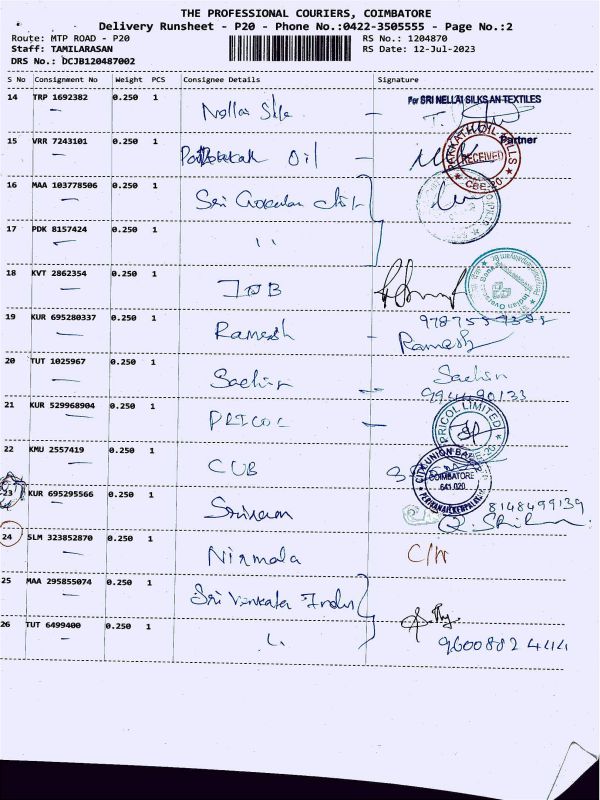 THE PROFESSIONAL COURIERS, COIMBATORE
Delivery Runsheet - P20 - Phone No.:0422-3505555 - Page No.:2
Route: MTP ROAD - P20 RS No.: 1204870
Staff: TAMILARASAN RS Date: 12-Jul-2023
DRS No.: DCJB120487002
S No Consignment No Weight PCS Consignee Details Signature
14 TRP 1692382 0.250 1 Nellai Silk For SRI NELLAI SILKS AN TEXTILES
Partner
15 VRR 7243101 0.250 1 Oil RECEIVED CBE-20
16 MAA 103778506 0.250 1 Sri
17 PDK 8157424 0.250 1 "
18 KVT 2862354 0.250 1 IOB
19 KUR 695280337 0.250 1 Ramesh
Ramesh
20 TUT 1025967 0.250 1 Sachin Sachin
21 KUR 529968904 0.250 1 PRICOL PRICOL LIMITED
22 KMU 2557419 0.250 1 CUB CITY UNION BANK COIMBATORE 641 020
23 KUR 695295566 0.250 1 Sriram 8148499139
24 SLM 323852870 0.250 1 Nirmala
25 MAA 295855074 0.250 1 Sri Venkata
26 TUT 6499400 0.250 1 "
9600882444